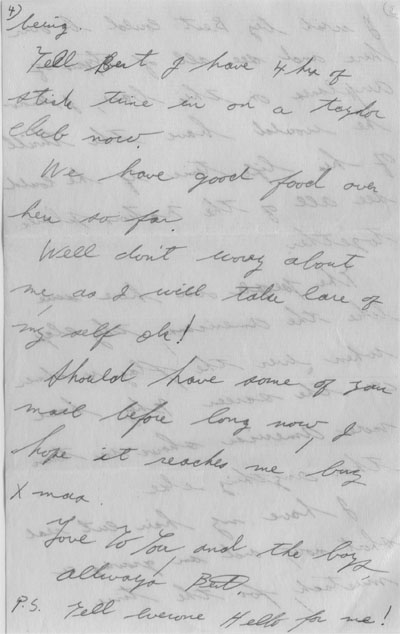 4)
being.
Tell Bert I have 4 hr of
stick time in on a taylor
club now.
We have good food over
here so far.
Well don't worry about
me, as I will take care of
my self ok!
Should have some of your
mail before long now, I
hope it reaches me buy
Xmas.
Love To You, and the boys
allways
P.S. Tell everone Hello for me!